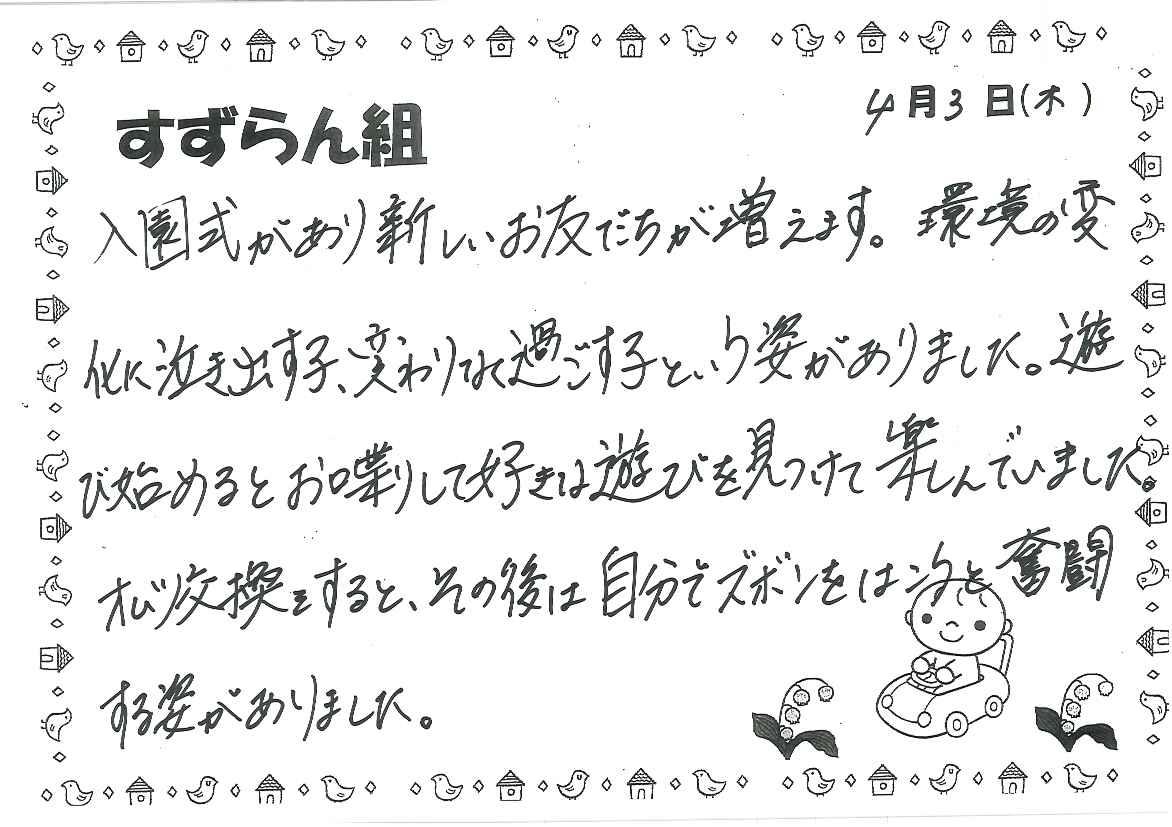 すずらん組
4月3日(木)
入園式があり新しいお友だちが増えます。環境の変
化に泣き出す子、変わりなく過ごす子という姿がありました。遊
び始めるとお喋りして好きな遊びを見つけて楽しんでいました。
オムツ交換をすると、その後は自分でズボンをはこうと奮闘
する姿がありました。